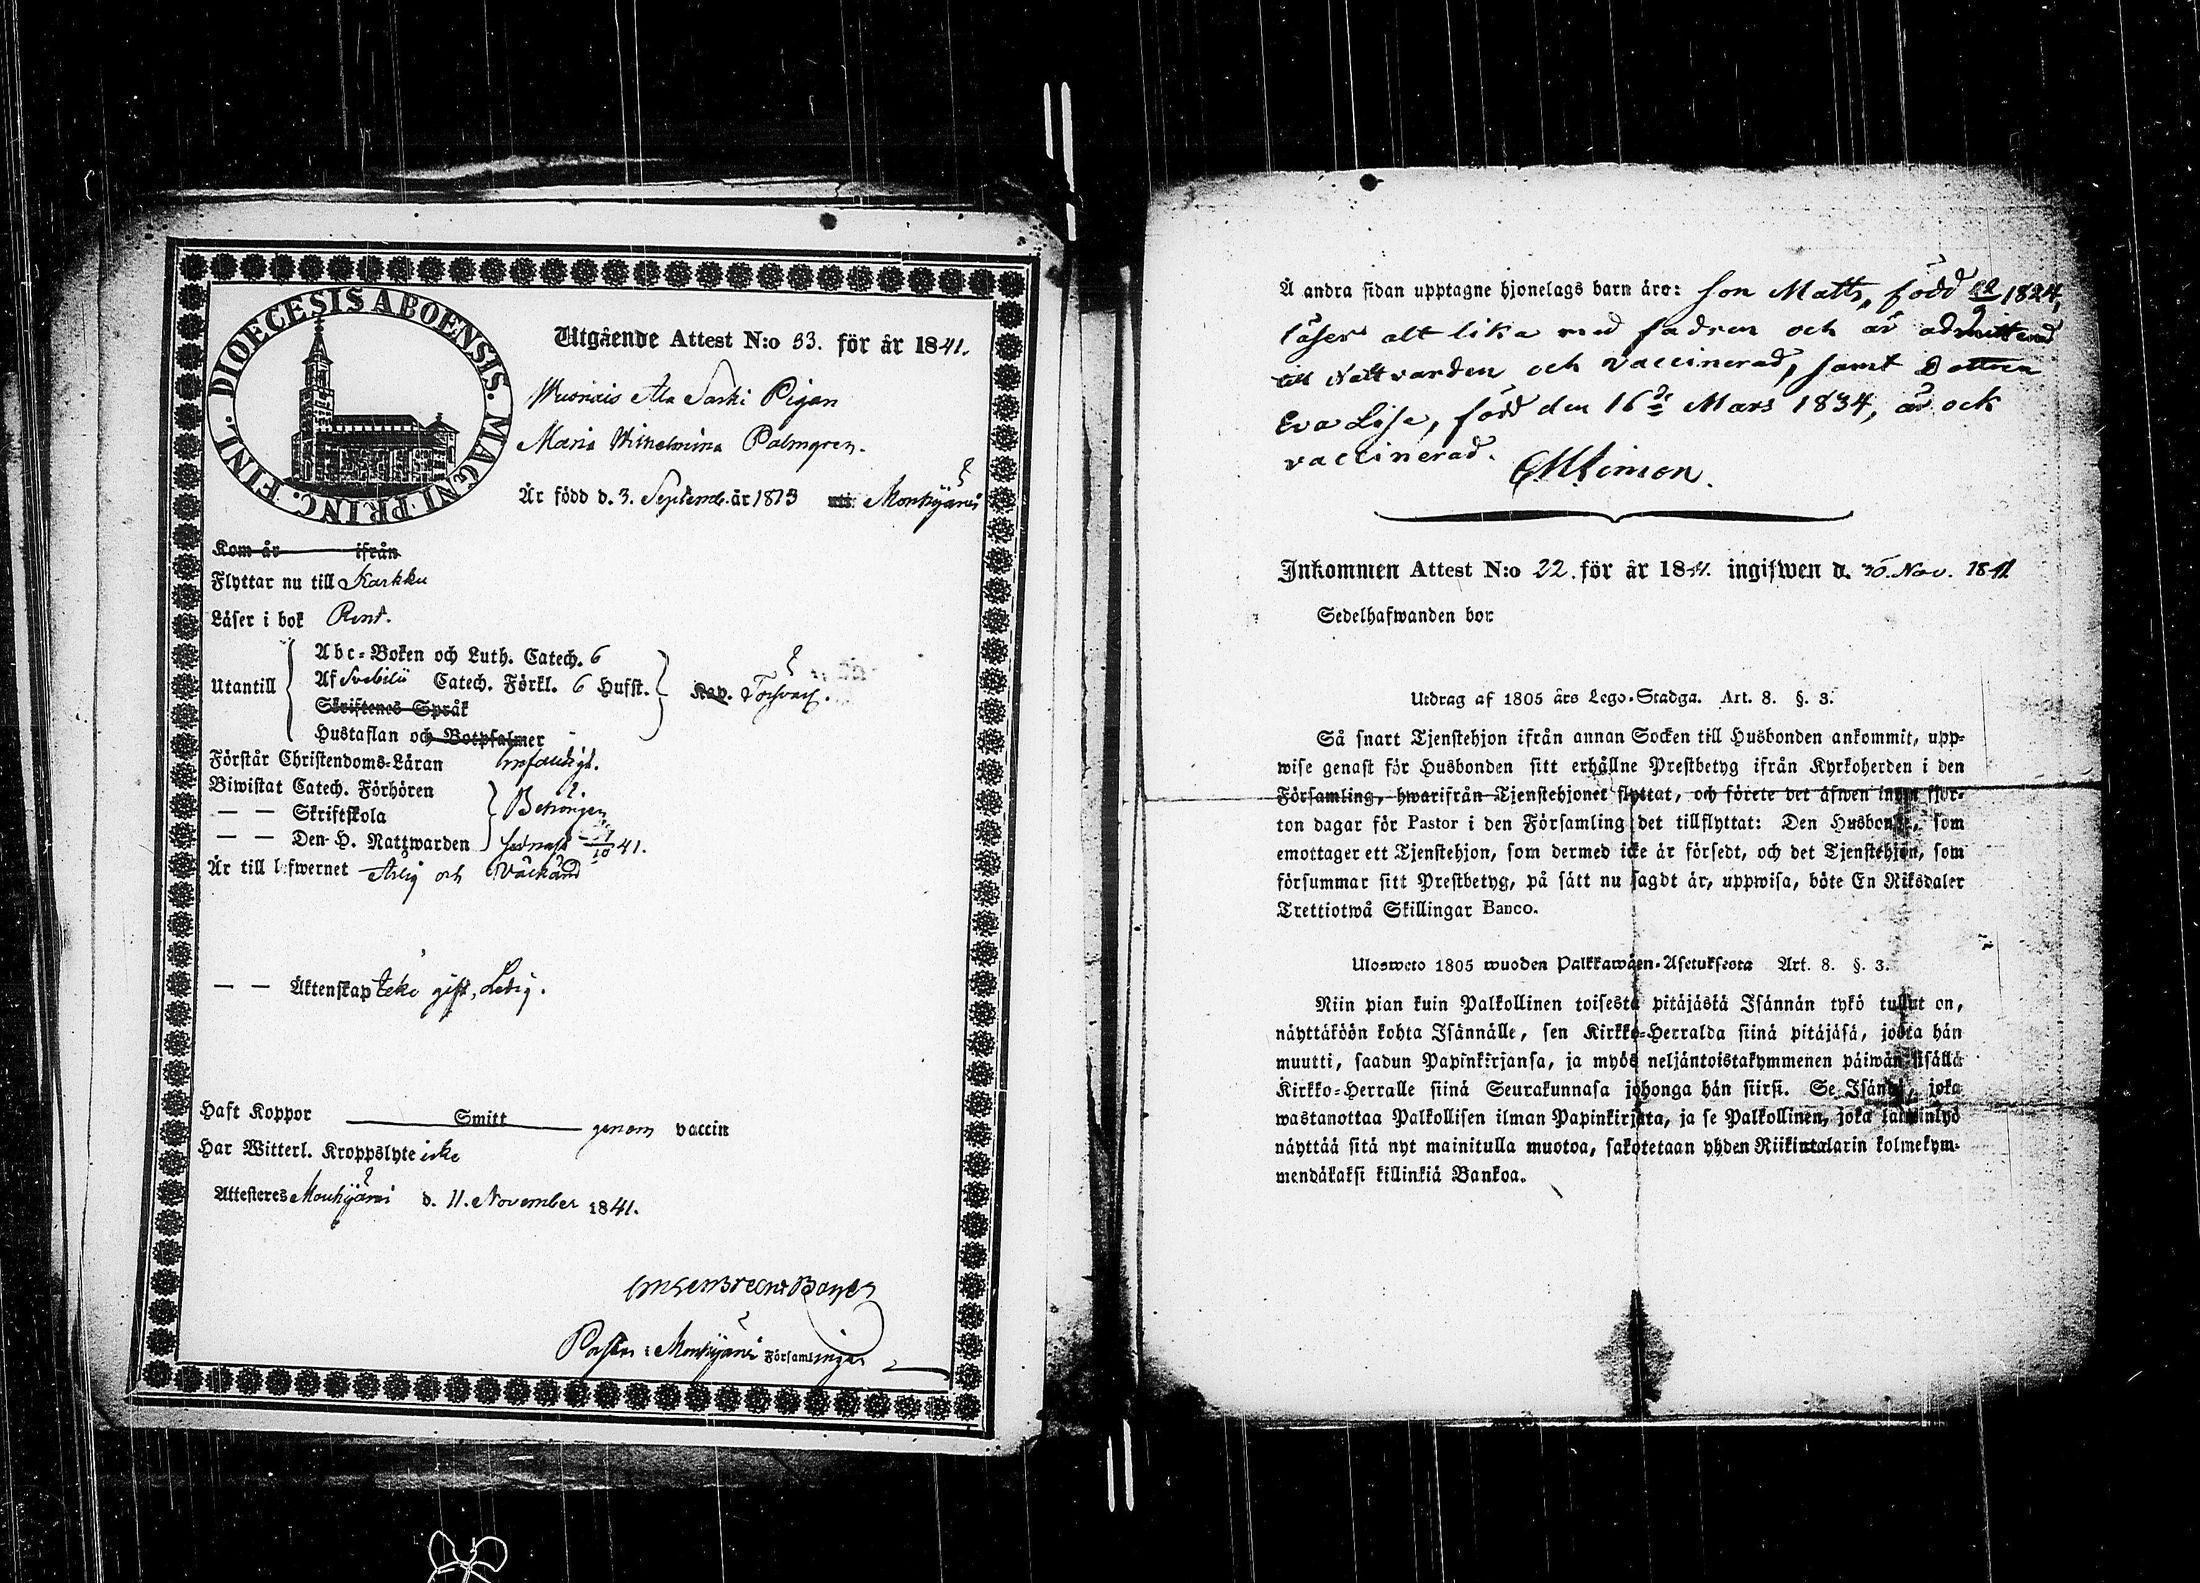 DIOECESIS ABOENSIS. MAGNI PRINC. FINL.
Utgående Attest N:o 33. för år 1841.
Pigan
Maria Wilhelmina Palmgren.
Är född d. 3. Septemb. år 1813 uti Mouhijärvi
Kom år ifrån
Flyttar nu till Karkku
Läser i bok Rent.
Utantill
Abc-Boken och Luth. Catech. 6
Af Svebilii Catech. Förkl. 6 Hufst. Kap. Försvarl.
Skriftenes Språk
Hustaflan och Botpsalmer
Förstår Christendoms-Läran Enfaldigt.
Biwistat Catech. Förhören
— — Skriftskola Behörigen
— — Den H. Nattwarden senast 10 41.
Är till lefwernet Ärlig och
— — Äktenskap Icke gift, Ledig.
Haft Koppor Smitt genom vaccin
Har Witterl. Kroppslyte icke
Attesteres Mouhijärvi d. 11. November 1841.
Pastor i Mouhijärvi Församlingar
Å andra sidan upptagne hjonelags barn äro: son Matts, född 1824,
läser alt lika med fadren och är admitterad
till Nattvarden och vaccinerad, samt Dottren
Eva Lisa, född den 16de Mars 1834, är ock
vaccinerad.
Inkommen Attest N:o 22. för år 1841. ingifwen d. 30. Nov. 1841
Sedelhafwanden bor
Utdrag af 1805 års Lego-Stadga. Art. 8. §. 3.
Så snart Tjenstehjon ifrån annan Socken till Husbonden ankommit, upp-
wise genast för Husbonden sitt erhållne Prestbetyg ifrån Kyrkoherden i den
Församling, hwarifrån Tjenstehjonet flyttat, och förete det äfwen inom fjor-
ton dagar för Pastor i den Församling det tillflyttat: Den Husbonde, som
emottager ett Tjenstehjon, som dermed icke är försedt, och det Tjenstehjon, som
försummar sitt Prestbetyg, på sätt nu sagdt är, uppwisa, böte En Riksdaler
Trettiotwå Skillingar Banco.
Ulosweto 1805 wuoden Palkkawäen-Asetuksesta Art. 8. §. 3.
Niin pian kuin Palkollinen toisesta pitäjästä Isännän tykö tullut on,
näyttäköön kohta Isännälle, sen Kirkko-Herralda siinä pitäjäsä, josta hän
muutti, saadun Papinkirjansa, ja myös neljäntoistakymmenen päiwän sisällä
Kirkko-Herralle siinä Seurakunnasa johonga hän siirsi. Se Isändä, joka
wastanottaa Palkollisen ilman Papinkirjata, ja se Palkollinen, joka laiminlyö
näyttää sitä nyt mainitulla muotoa, sakotetaan yhden Riikintalarin kolmekym-
mendäkaksi killinkiä Bankoa.